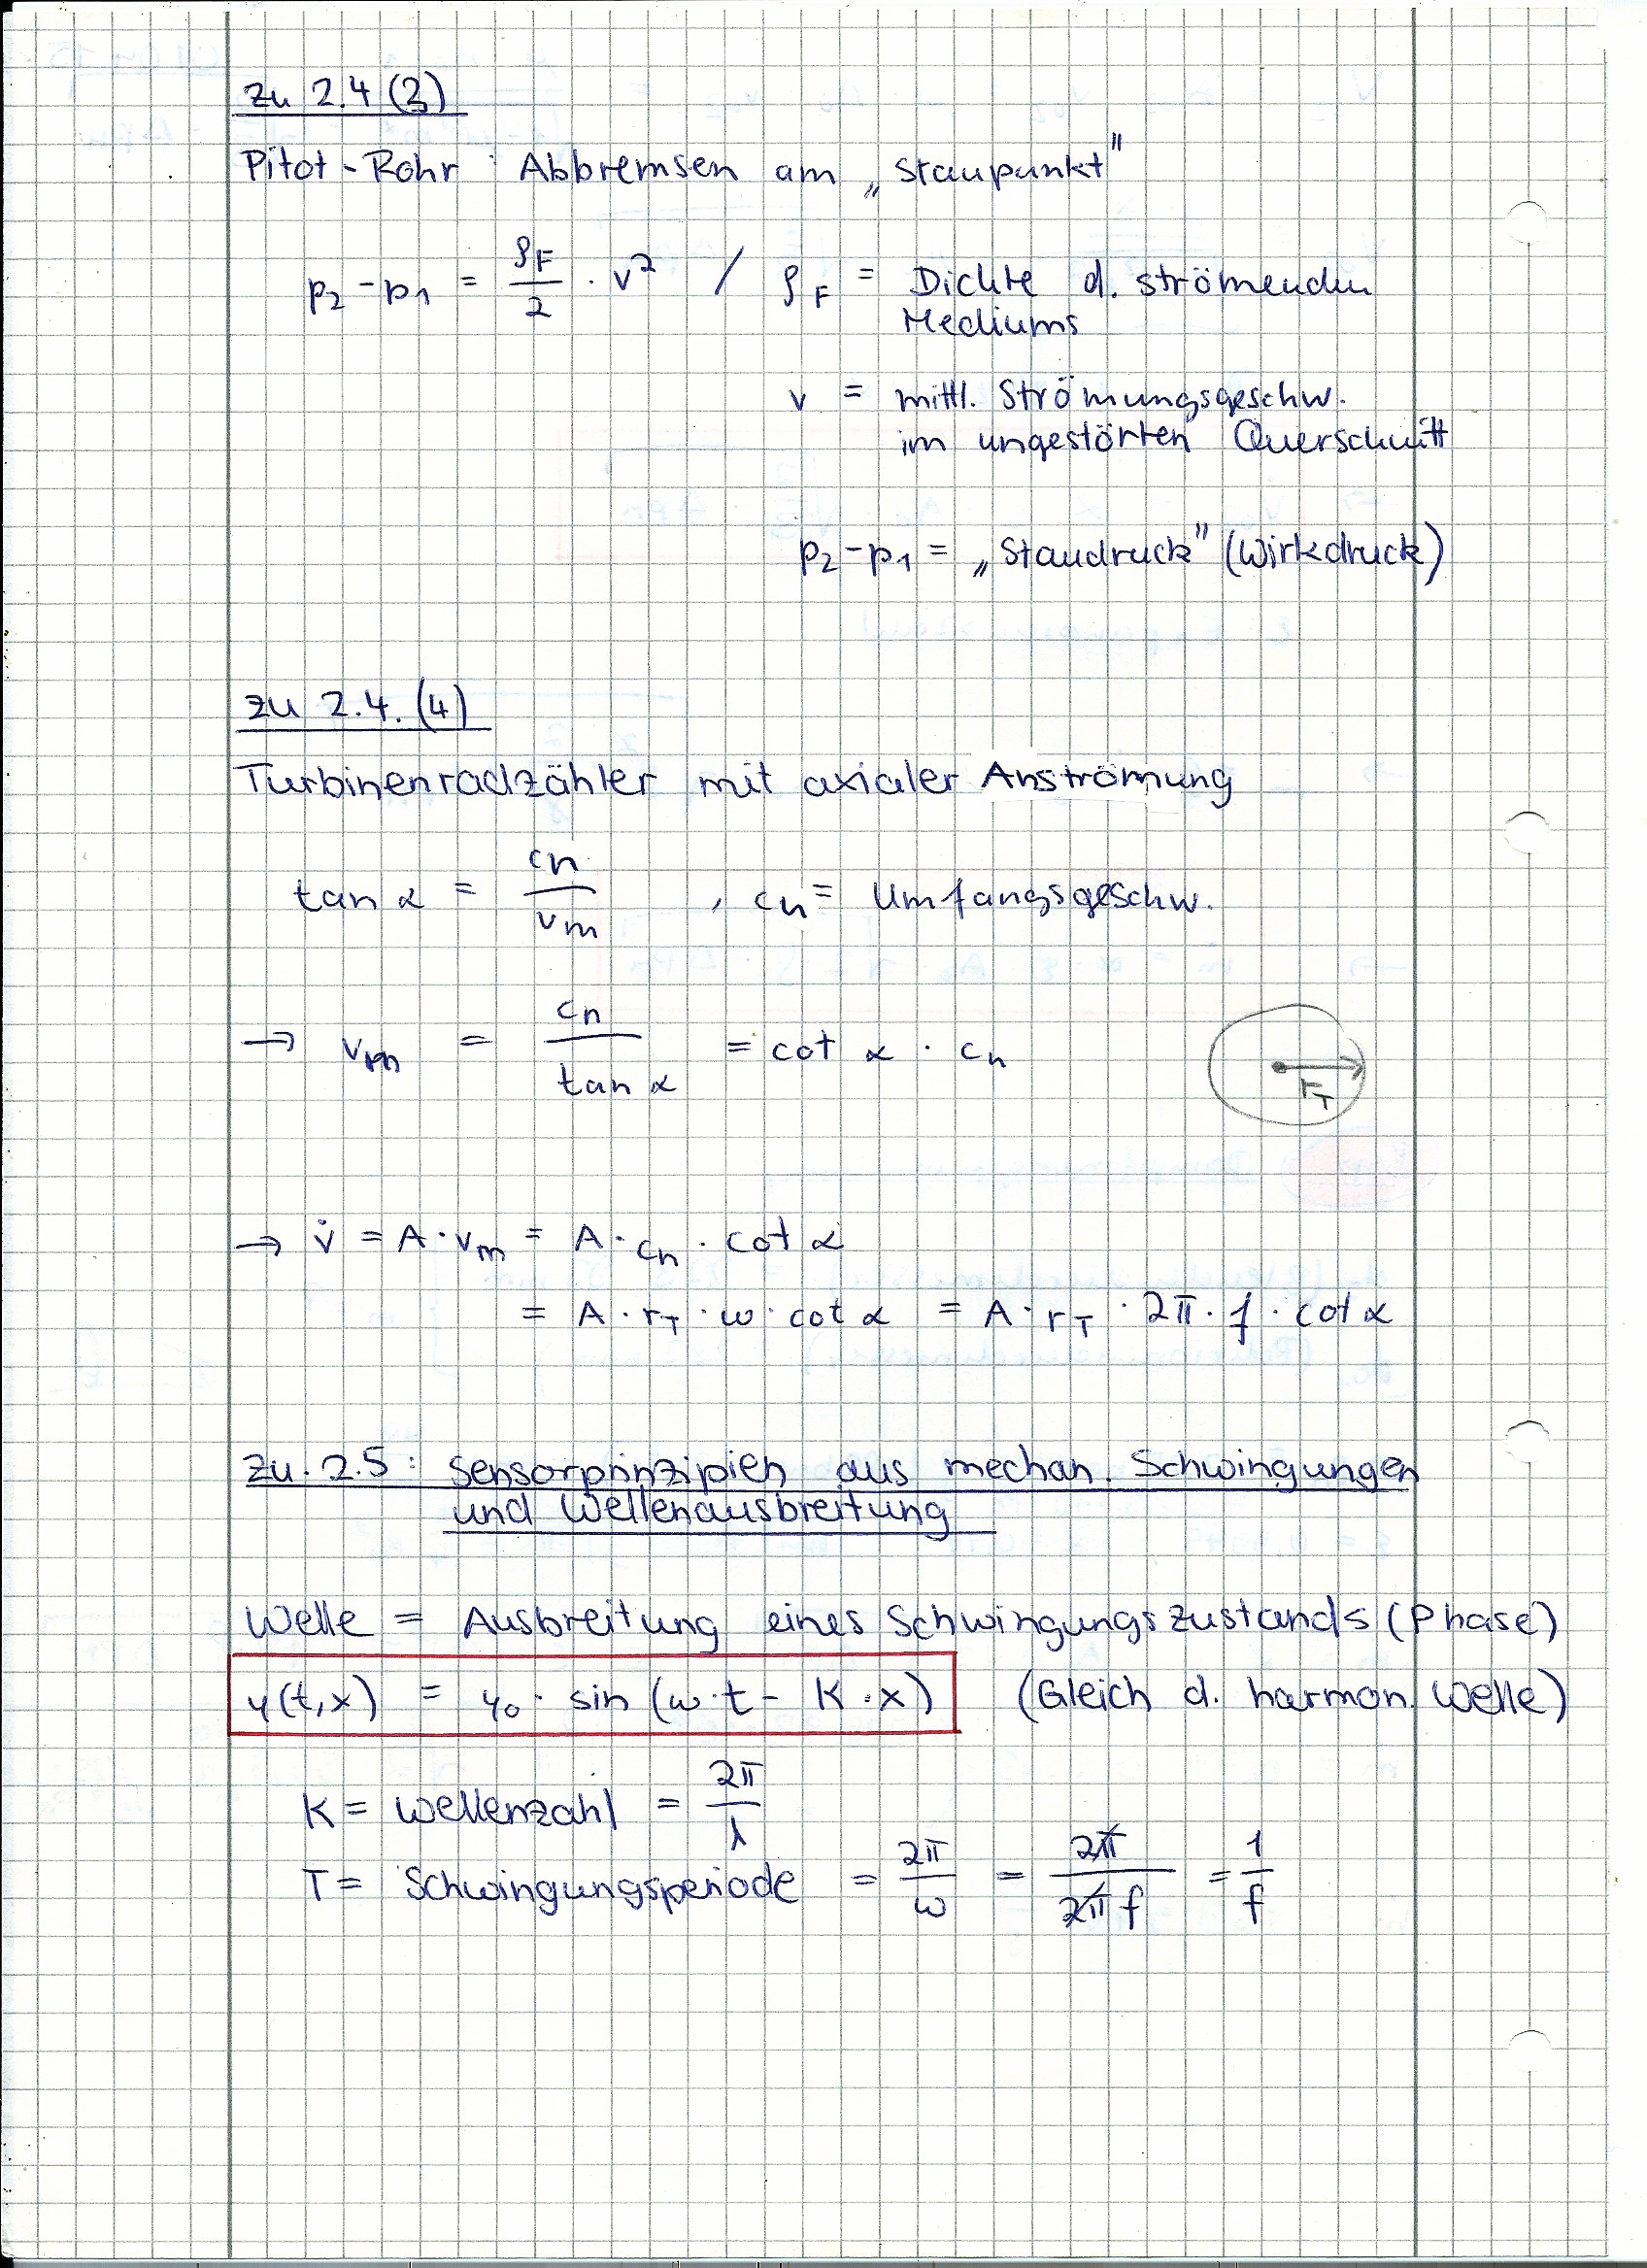 zu 2.4 (3)
Pitot-Rohr : Abbremsen am „Staupunkt"
p₂ - p₁ = ρ_F / 2 · v² / ρ_F = Dichte d. strömenden
Mediums
v = mittl. Strömungsgeschw.
im ungestörten Querschnitt
p₂ - p₁ = „Staudruck" (Wirkdruck)
zu 2.4. (4)
Turbinenradzähler mit axialer Anströmung
tan α = cn / vm , cn = Umfangsgeschw.
→ vm = cn / tan α = cot α · cn
r_T
→ V̇ = A · vm = A · cn · cot α
= A · r_T · ω · cot α = A · r_T · 2π · f · cot α
Zu. 2.5 : Sensorprinzipien aus mechan. Schwingungen
und Wellenausbreitung
Welle = Ausbreitung eines Schwingungszustands (Phase)
y(t,x) = y₀ · sin (ω · t - K · x) (Gleich d. harmon. Welle)
K = Wellenzahl = 2π / λ
T = Schwingungsperiode = 2π / ω = 2π / 2π f = 1 / f